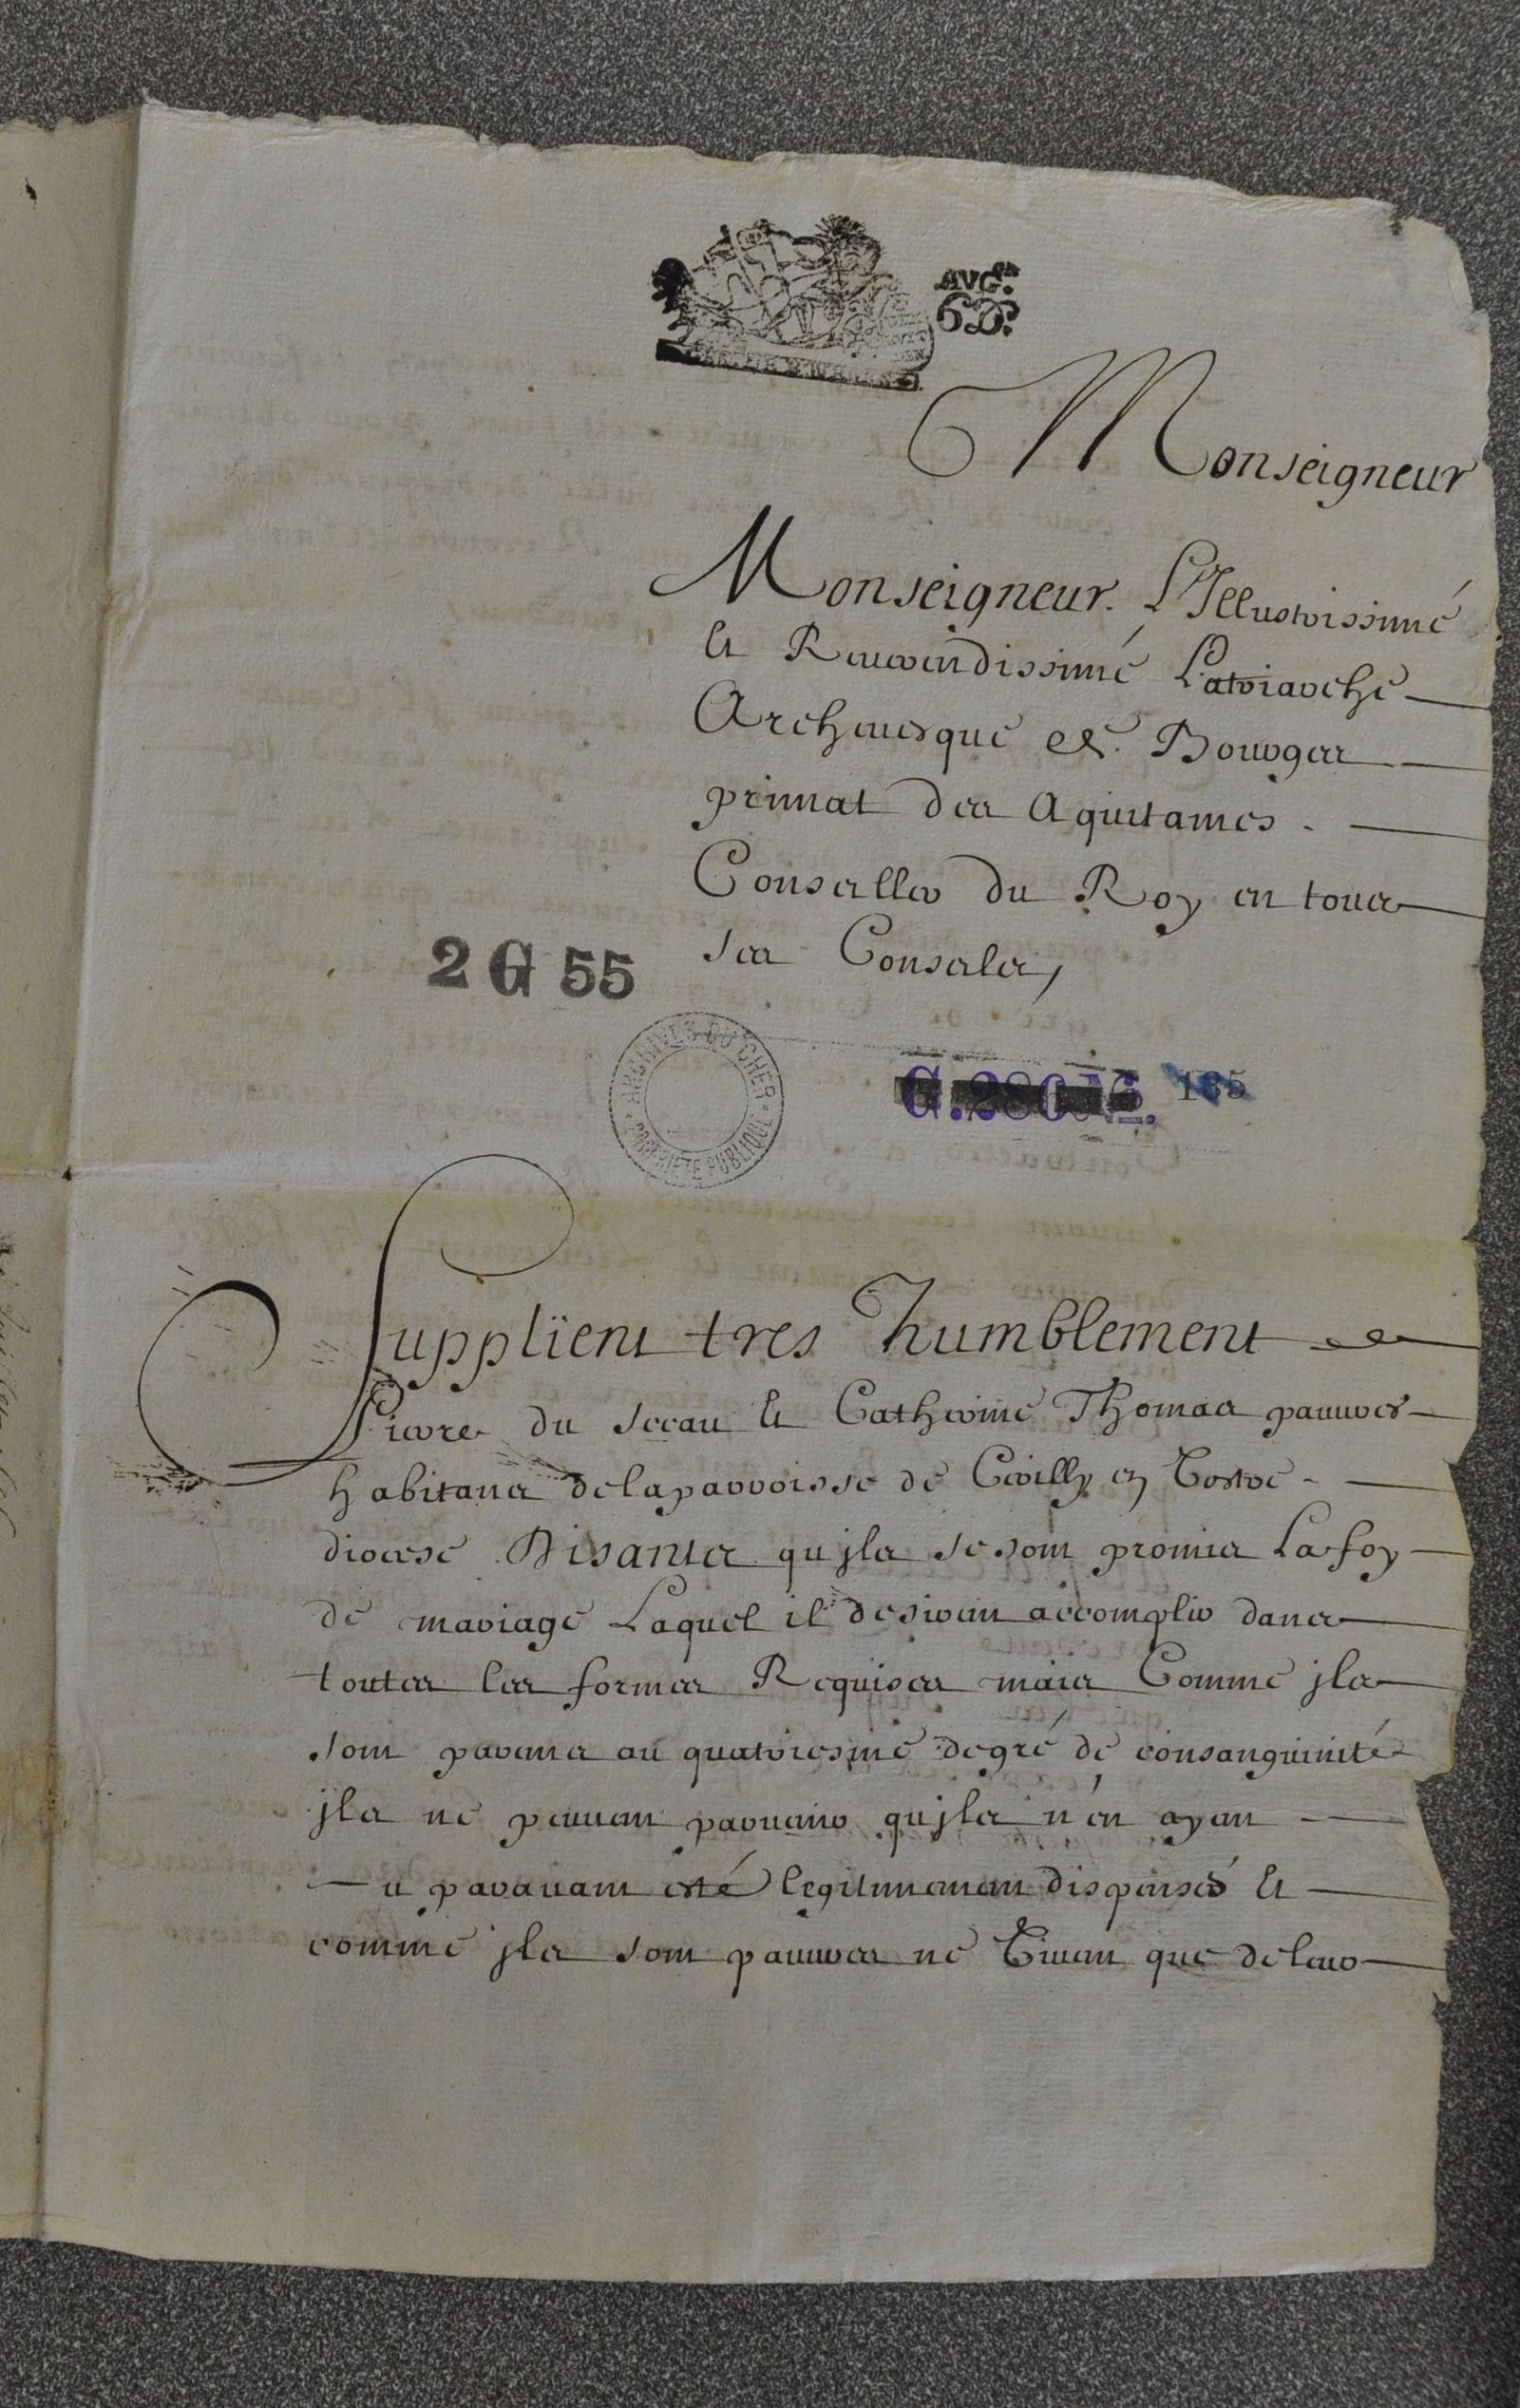 AVG.on
6D.
Monseigneur
Monseigneur. L'Illustrissime
et Reuerendissime Patriarche
Archeuesque de Bourges
primat des Aquitaines.
Conseiller du Roy en tous
ses Conseils,
2 G 55
ARCHIVES DU CHER
PROPRIETE PUBLIQUE
G. 280 No. 185
Supplient tres humblement
Pierre du seau et Catherine Thomas pauures
habitans de la parroisse de Creilly en Vostre
diocese Disants qu jls se sont promis La foy
de mariage Laquel il desirent accomplir dans
toutes les formes Requises mais Comme jls
sont parens au quatriesme degré de consanguinité
jls ne peuuent paruenir qu jls n'en ayent
u parauant esté legitimement dispensés et
comme jls sont pauures ne Viuent que de leur